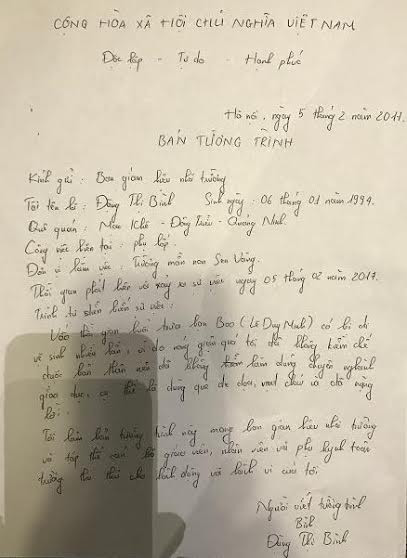 CỘNG HÒA XÃ HỘI CHỦ NGHĨA VIỆT NAM
Độc lập - Tự do - Hạnh phúc
Hà nội, ngày 5 tháng 2 năm 2017.
BẢN TƯỜNG TRÌNH
Kính gửi : Ban giám hiệu nhà trường
Tôi tên là : Đặng Thị Bình Sinh ngày : 06 tháng 01 năm 1994.
Quê quán : Mạo Khê - Đông Triều - Quảng Ninh.
Công việc hiện tại : phụ lớp.
Đơn vị làm việc : Trường mầm non Sen Vàng.
Thời gian phát hiện và xảy ra sự việc ngày 05 tháng 02 năm 2017.
Trình tự diễn biến sự việc :
Vào thời gian buổi trưa bạn Bao (Lê Duy Minh) có bị đi
vệ sinh nhiều lần, vì do nóng giận quá tôi đã không kiềm chế
được bản thân nên đã không làm đúng chuyên nghành
giáo dục, cụ thể là dùng que đe dọa, và đã nặng
lời.
Tôi làm bản tường trình này mong ban giám hiệu nhà trường
và tập thể cán bộ giáo viên, nhân viên và phụ huynh toàn
trường tha thứ cho hành động và hành vi của tôi
Người viết tường trình
Bình
Đặng Thị Bình